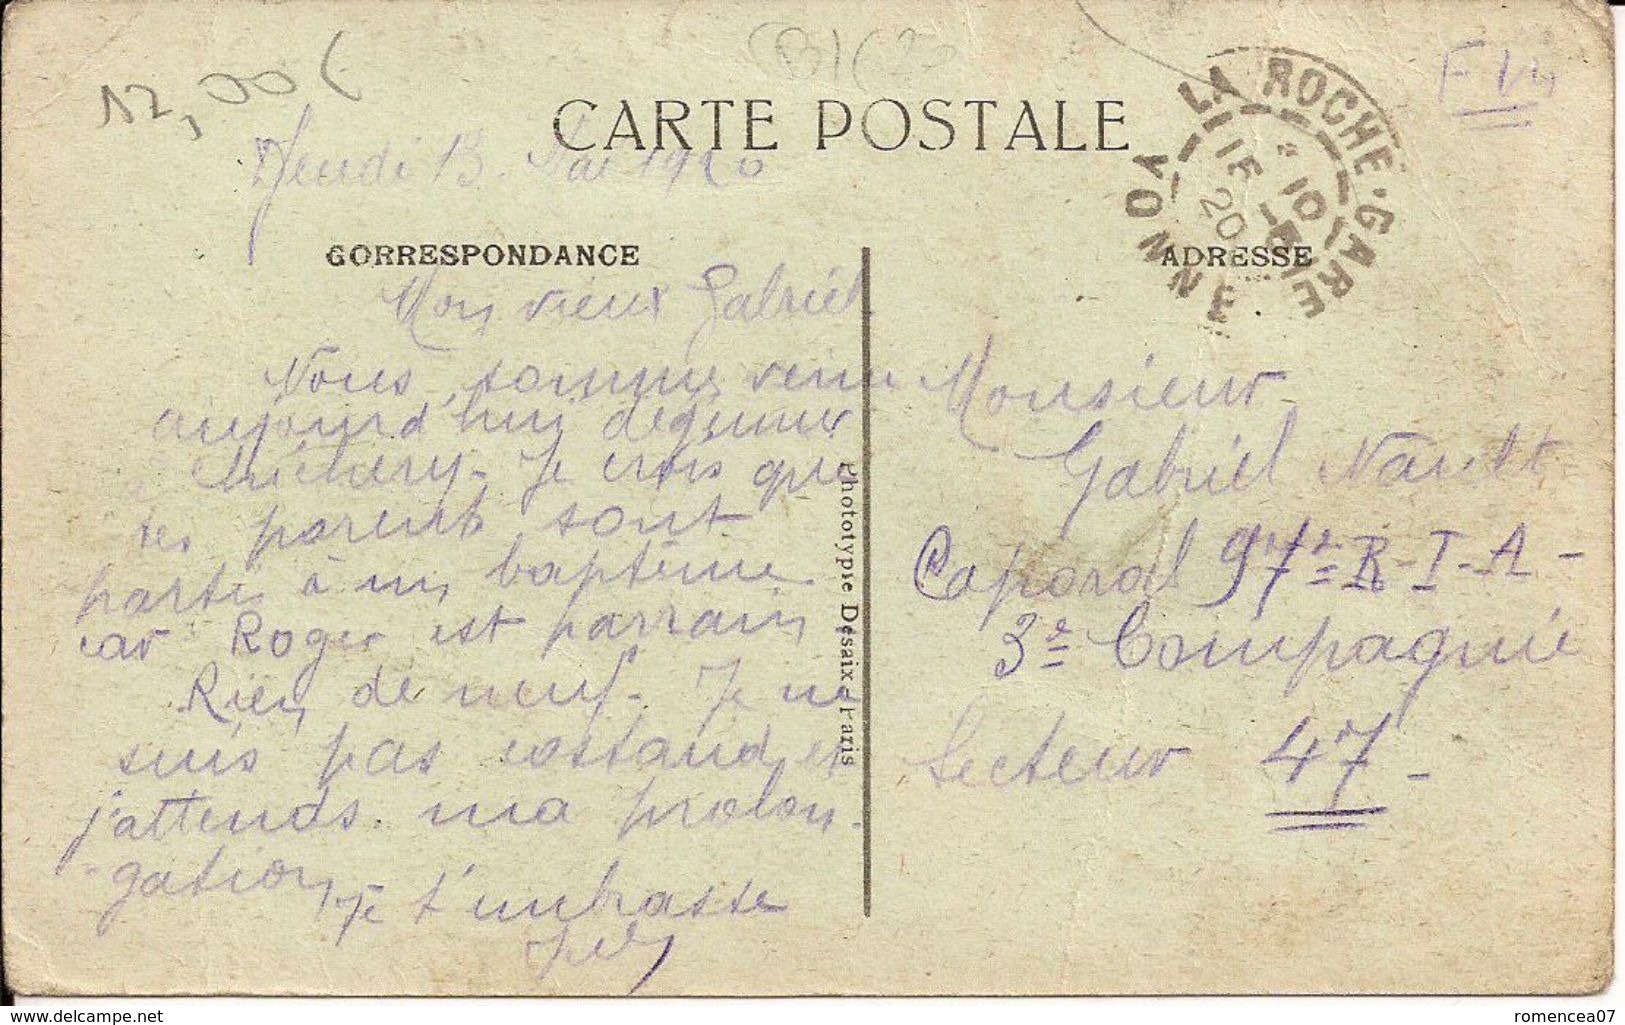 12,00€
F 14
CARTE POSTALE
Jeudi 13 Mai 1920
LA ROCHE-GARE
YONNE
20
CORRESPONDANCE
ADRESSE
Mon vieux Gabriel
Nous sommes venu
aujourd'hui déjeuner
à Chichery. Je crois que
tes parents sont
parti à un baptême
car Roger est parrain
Rien de neuf. Je ne
suis pas costaud, et
j'attends ma prolon-
-gation, Je t'embrasse
Phototypie Desaix-Paris
Monsieur
Gabriel Nault
Caporal 97e R-I-A-
3e Compagnie
Secteur 47-
delcampe.net
romencea07